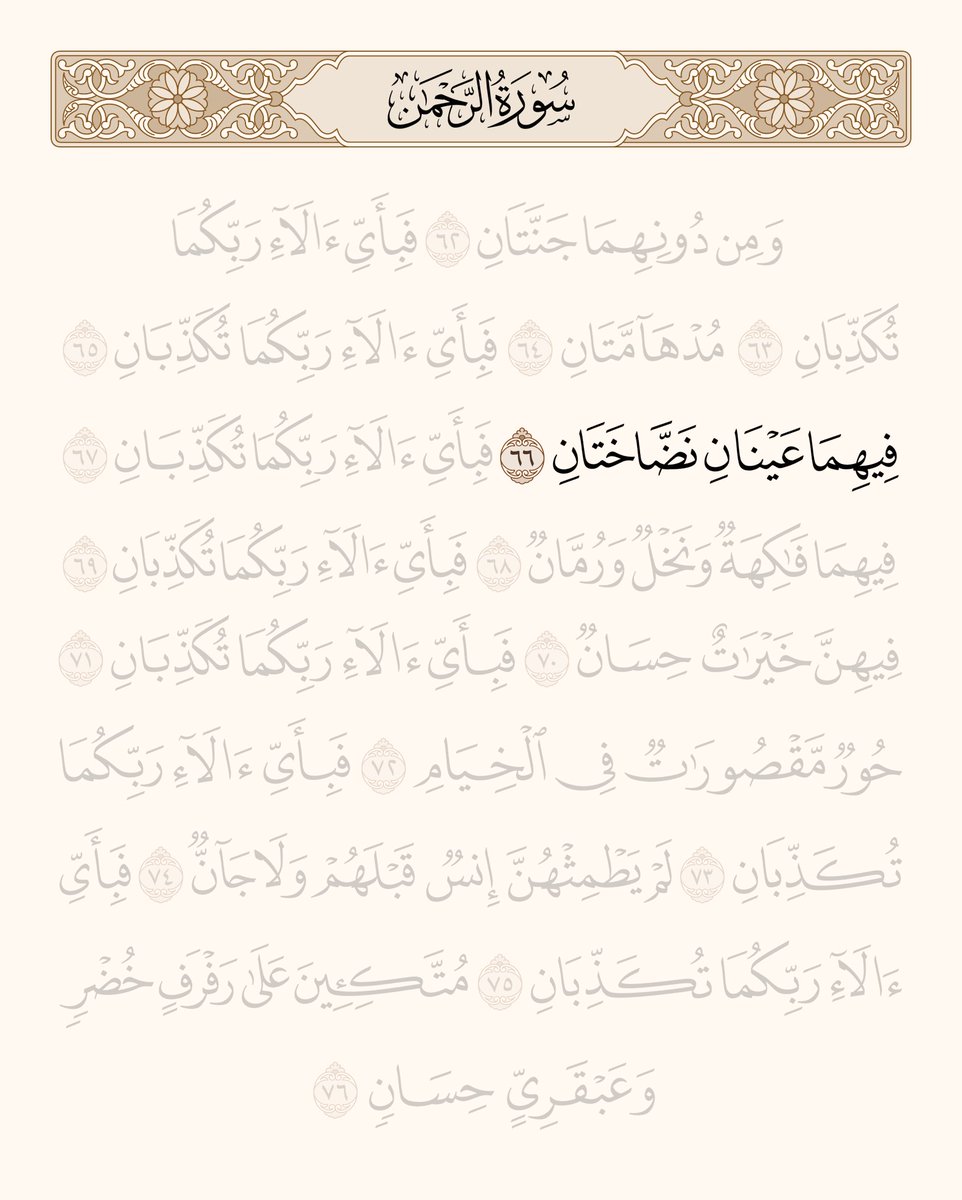 سُورَةُ الرَّحْمَٰن
وَمِن دُونِهِمَا جَنَّتَانِ ٦٢ فَبِأَيِّ ءَالَآءِ رَبِّكُمَا
تُكَذِّبَانِ ٦٣ مُدْهَآمَّتَانِ ٦٤ فَبِأَيِّ ءَالَآءِ رَبِّكُمَا تُكَذِّبَانِ ٦٥
فِيهِمَا عَيْنَانِ نَضَّاخَتَانِ ٦٦ فَبِأَيِّ ءَالَآءِ رَبِّكُمَا تُكَذِّبَانِ ٦٧
فِيهِمَا فَٰكِهَةٌ وَنَخْلٌ وَرُمَّانٌ ٦٨ فَبِأَيِّ ءَالَآءِ رَبِّكُمَا تُكَذِّبَانِ ٦٩
فِيهِنَّ خَيْرَٰتٌ حِسَانٌ ٧٠ فَبِأَيِّ ءَالَآءِ رَبِّكُمَا تُكَذِّبَانِ ٧١
حُورٌ مَّقْصُورَٰتٌ فِي ٱلْخِيَامِ ٧٢ فَبِأَيِّ ءَالَآءِ رَبِّكُمَا
تُكَذِّبَانِ ٧٣ لَمْ يَطْمِثْهُنَّ إِنسٌ قَبْلَهُمْ وَلَا جَآنٌّ ٧٤ فَبِأَيِّ
ءَالَآءِ رَبِّكُمَا تُكَذِّبَانِ ٧٥ مُتَّكِـِٔينَ عَلَىٰ رَفْرَفٍ خُضْرٍ
وَعَبْقَرِيٍّ حِسَانٍ ٧٦